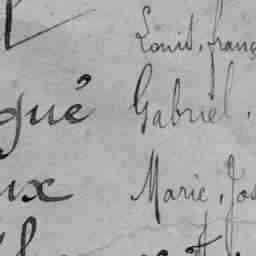 Louis, franç
gué Gabriel.
ux Marie, Jos